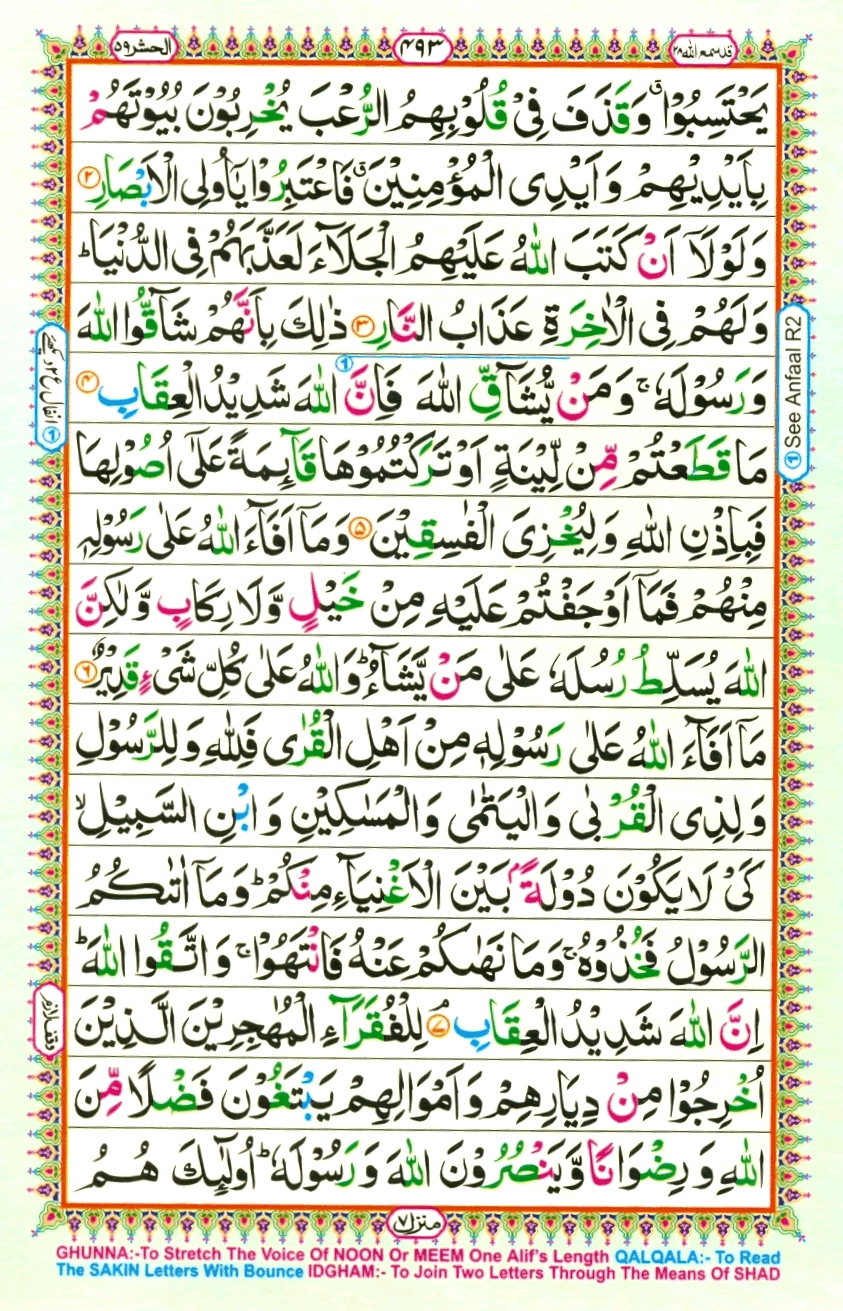 قد سمع الله ۲۸
۴۹۳
الحشر ۵۹
يَحْتَسِبُوْا ۗ وَقَذَفَ فِىْ قُلُوْبِهِمُ الرُّعْبَ يُخْرِبُوْنَ بُيُوْتَهُمْ
بِاَيْدِيْهِمْ وَاَيْدِى الْمُؤْمِنِيْنَ ۗ فَاعْتَبِرُوْا يٰۤاُولِى الْاَبْصَارِ ۲
وَلَوْلَاۤ اَنْ كَتَبَ اللّٰهُ عَلَيْهِمُ الْجَلَآءَ لَعَذَّبَهُمْ فِى الدُّنْيَا ؕ
وَلَهُمْ فِى الْاٰخِرَةِ عَذَابُ النَّارِ ۳ ذٰلِكَ بِاَنَّهُمْ شَآقُّوا اللّٰهَ
وَرَسُوْلَهٗ ۚ وَمَنْ يُّشَآقِّ اللّٰهَ فَاِنَّ اللّٰهَ شَدِيْدُ الْعِقَابِ ۴
مَا قَطَعْتُمْ مِّنْ لِّيْنَةٍ اَوْ تَرَكْتُمُوْهَا قَآئِمَةً عَلٰٓى اُصُوْلِهَا
فَبِاِذْنِ اللّٰهِ وَلِيُخْزِىَ الْفٰسِقِيْنَ ۵ وَمَاۤ اَفَآءَ اللّٰهُ عَلٰى رَسُوْلِهٖ
مِنْهُمْ فَمَاۤ اَوْجَفْتُمْ عَلَيْهِ مِنْ خَيْلٍ وَّلَا رِكَابٍ وَّلٰكِنَّ
اللّٰهَ يُسَلِّطُ رُسُلَهٗ عَلٰى مَنْ يَّشَآءُ ؕ وَاللّٰهُ عَلٰى كُلِّ شَىْءٍ قَدِيْرٌ ۶
مَاۤ اَفَآءَ اللّٰهُ عَلٰى رَسُوْلِهٖ مِنْ اَهْلِ الْقُرٰى فَلِلّٰهِ وَلِلرَّسُوْلِ
وَلِذِى الْقُرْبٰى وَالْيَتٰمٰى وَالْمَسٰكِيْنِ وَابْنِ السَّبِيْلِ ۙ
كَىْ لَا يَكُوْنَ دُوْلَةًۢ بَيْنَ الْاَغْنِيَآءِ مِنْكُمْ ؕ وَمَاۤ اٰتٰىكُمُ
الرَّسُوْلُ فَخُذُوْهُ ۚ وَمَا نَهٰىكُمْ عَنْهُ فَانْتَهُوْا ۚ وَاتَّقُوا اللّٰهَ ؕ
اِنَّ اللّٰهَ شَدِيْدُ الْعِقَابِ ۷ۘ لِلْفُقَرَآءِ الْمُهٰجِرِيْنَ الَّذِيْنَ
اُخْرِجُوْا مِنْ دِيَارِهِمْ وَاَمْوَالِهِمْ يَبْتَغُوْنَ فَضْلًا مِّنَ
اللّٰهِ وَرِضْوَانًا وَّيَنْصُرُوْنَ اللّٰهَ وَرَسُوْلَهٗ ؕ اُولٰٓئِكَ هُمُ
① See Anfaal R2
① انفال ع۲ دیکھئے
وقف لازم
منزل ۷
GHUNNA:-To Stretch The Voice Of NOON Or MEEM One Alif's Length QALQALA:- To Read
The SAKIN Letters With Bounce IDGHAM:- To Join Two Letters Through The Means Of SHAD